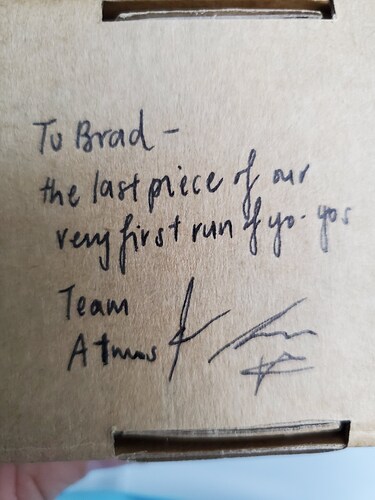 To Brad -
the last piece of our
very first run of yo-yos
Team
Atmos